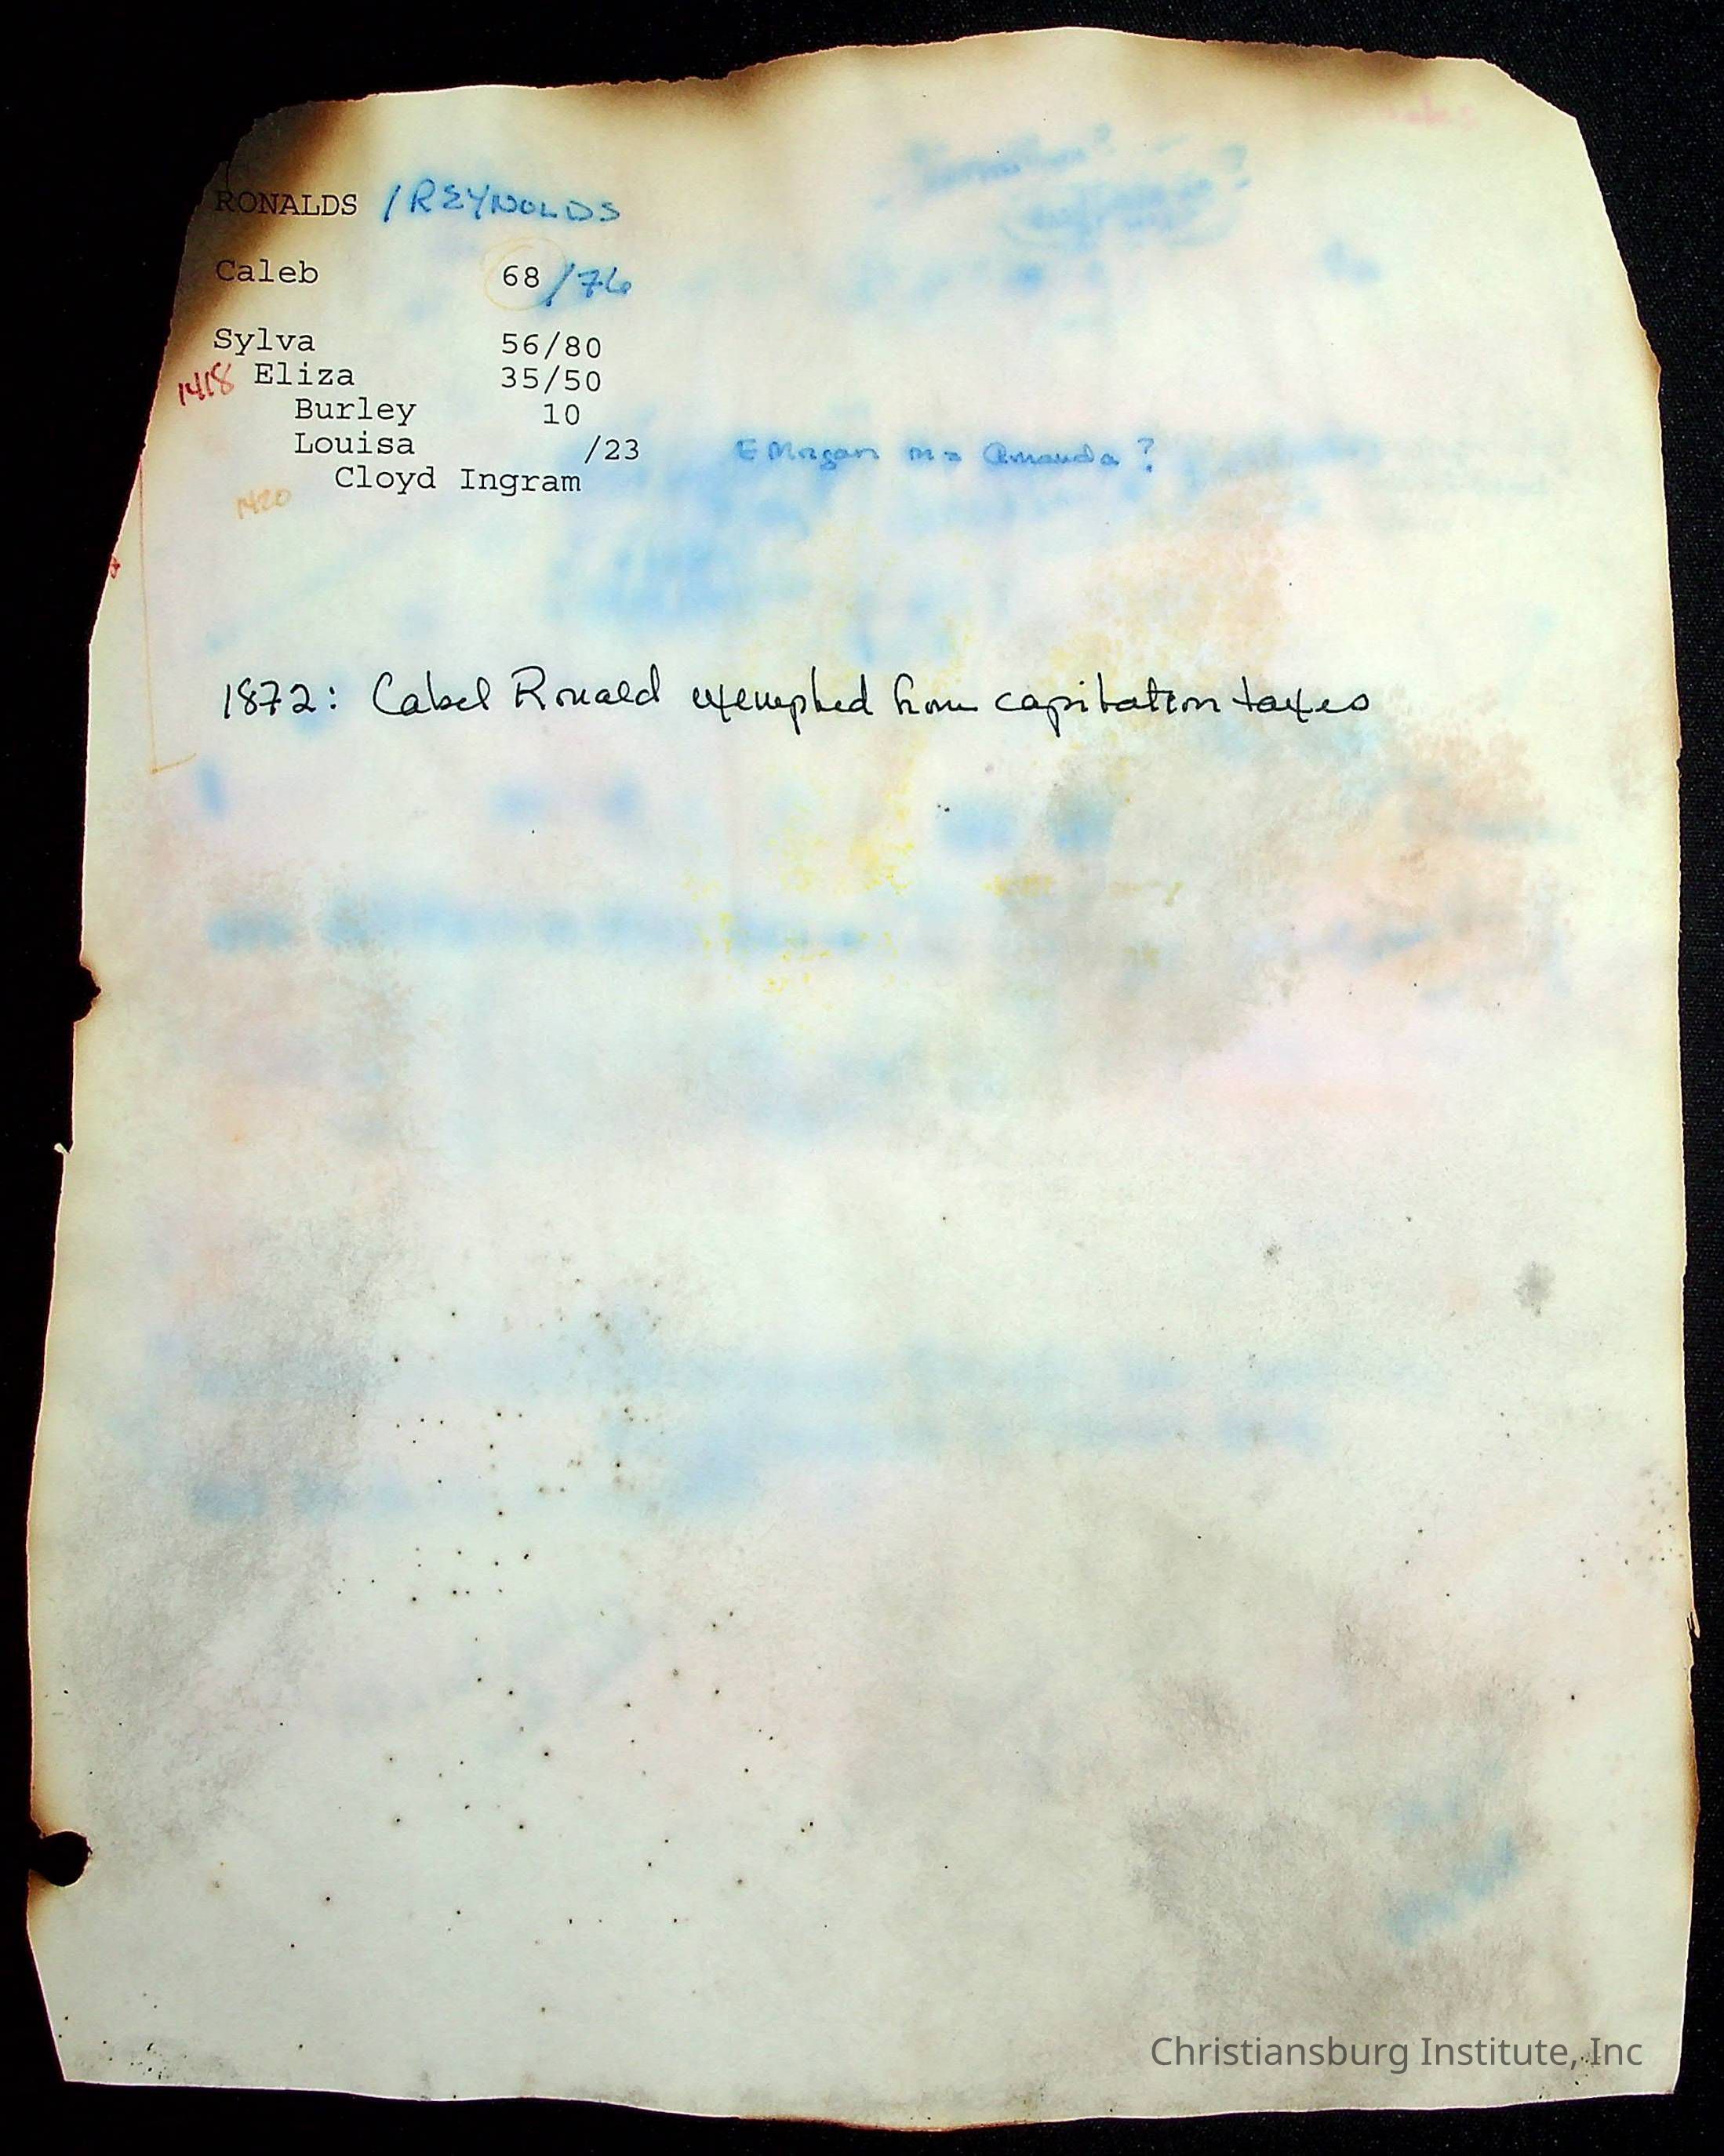 RONALDS /REYNOLDS
Caleb 68/76
Sylva 56/80
1418 Eliza 35/50
Burley 10
Louisa /23 E Morgan m = Amanda?
Cloyd Ingram
1420
1872: Cabel Ronald exempted from capitation taxes
Christiansburg Institute, Inc